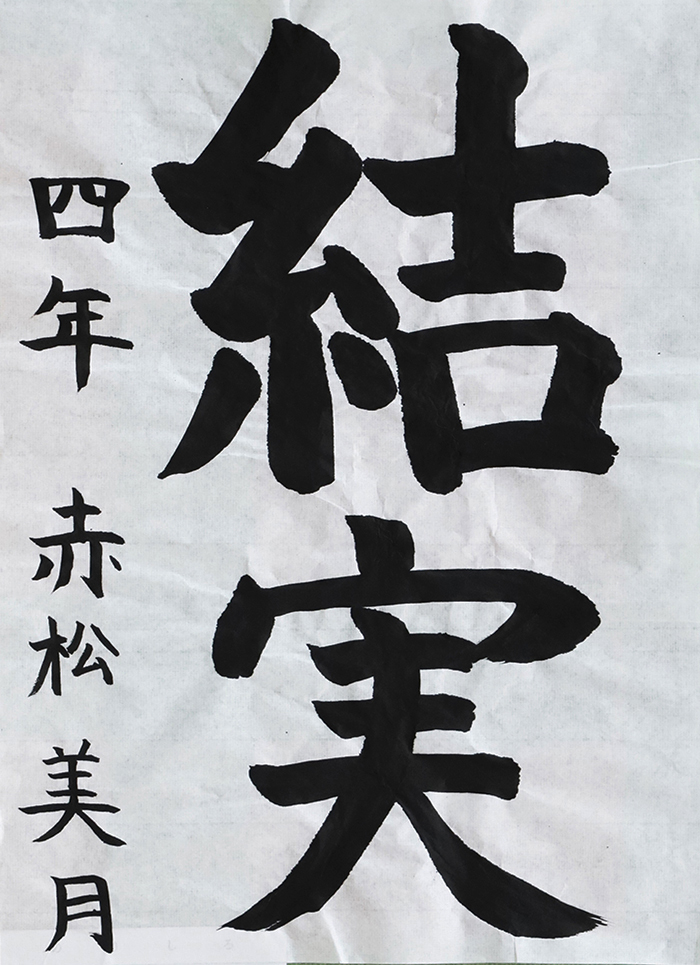 結実
四年 赤松美月